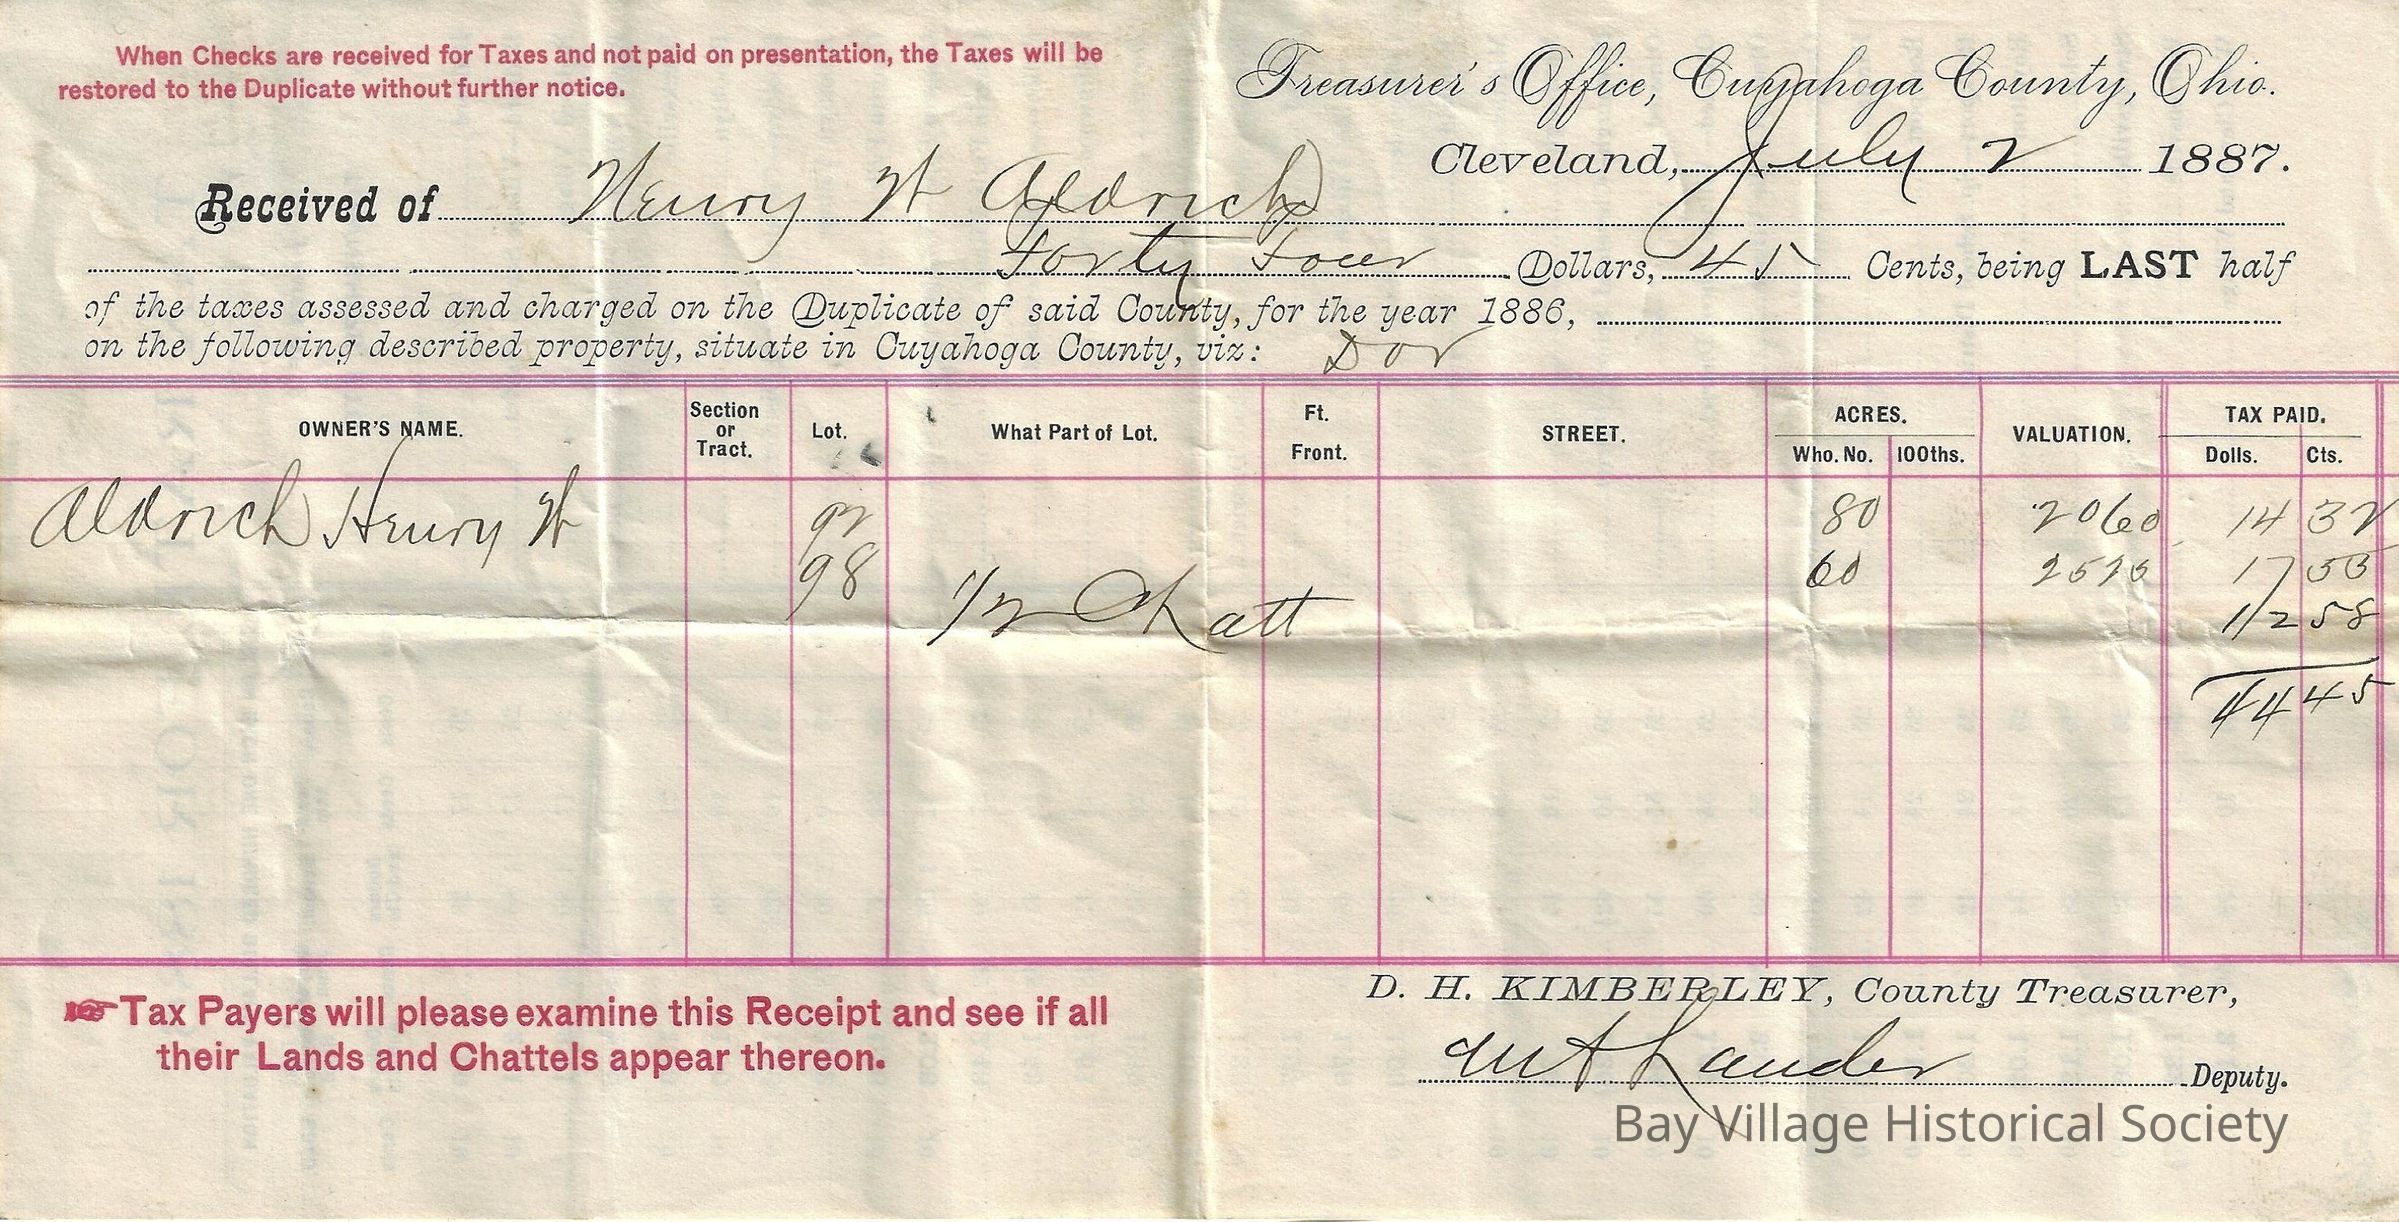 When Checks are received for Taxes and not paid on presentation, the Taxes will be
restored to the Duplicate without further notice.
Treasurer's Office, Cuyahoga County, Ohio.
Cleveland, July 2 1887.
Received of Henry W Aldrich
Forty Four Dollars, 45 Cents, being LAST half
of the taxes assessed and charged on the Duplicate of said County, for the year 1886,
on the following described property, situate in Cuyahoga County, viz: Dov
OWNER'S NAME. Section or Tract. Lot. What Part of Lot. Ft. Front. STREET. ACRES. Who. No. 100ths. VALUATION. TAX PAID. Dolls. Cts.
Aldrich Henry W 92 80 2060 14 32
98 60 2525 17 55
1/2 Chatt 12 58
44 45
Tax Payers will please examine this Receipt and see if all
their Lands and Chattels appear thereon.
D. H. KIMBERLEY, County Treasurer,
Lauder Deputy.
Bay Village Historical Society